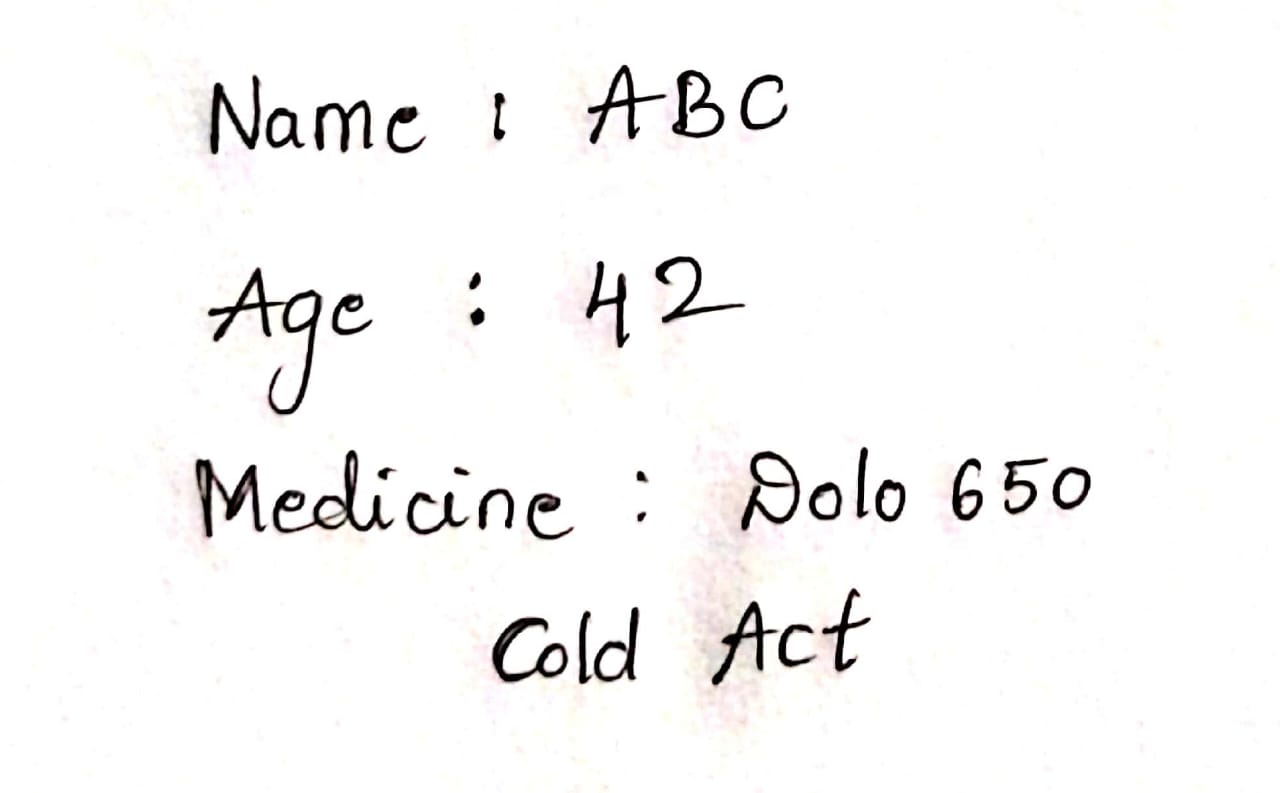 Name : ABC
Age : 42
Medicine : Dolo 650
Cold Act